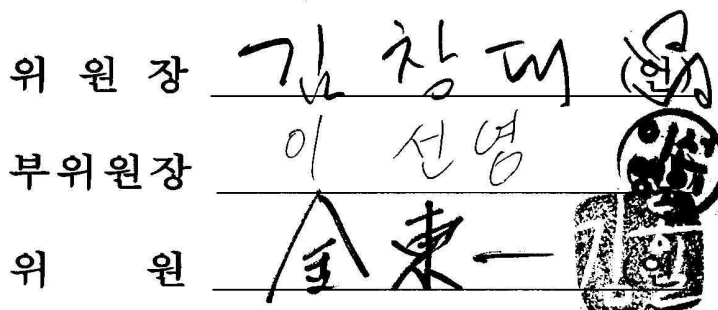 위 원 장 김 창 대 (인)
부위원장 이 선 영
위 원 金 東 一 인